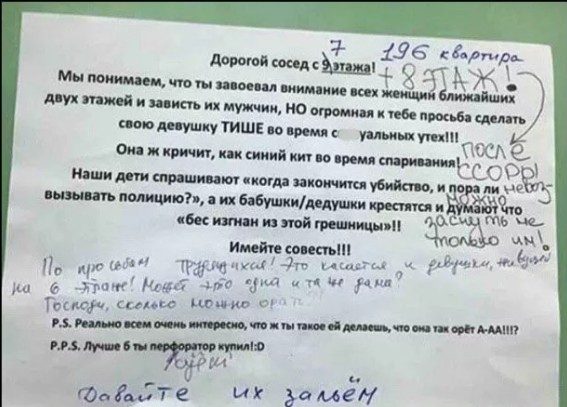 7 196 квартира
Дорогой сосед с 9 этажа!
+ 8 ЭТАЖ!
Мы понимаем, что ты завоевал внимание всех женщин ближайших
двух этажей и зависть их мужчин, НО огромная к тебе просьба сделать
свою девушку ТИШЕ во время с уальных утех!!!
Она ж кричит, как синий кит во время спаривания!
ПОСЛЕ
ССОРЫ
Наши дети спрашивают «когда закончится убийство, и пора ли
вызывать полицию?», а их бабушки/дедушки крестятся и думают что
«бес изгнан из этой грешницы»!!
невоз-
можно
заснуть не
только им!
Имейте совесть!!!
По просьбам трудящихся! Это касается и девушки, живущей
на 6 этаже! Может это одна и та же дама?
Господи, сколько можно
P.S. Реально всем очень интересно, что ж ты такое ей делаешь, что она так орёт А-АА!!!?
P.P.S. Лучше б ты перфоратор купил!:D
Давайте их зальём